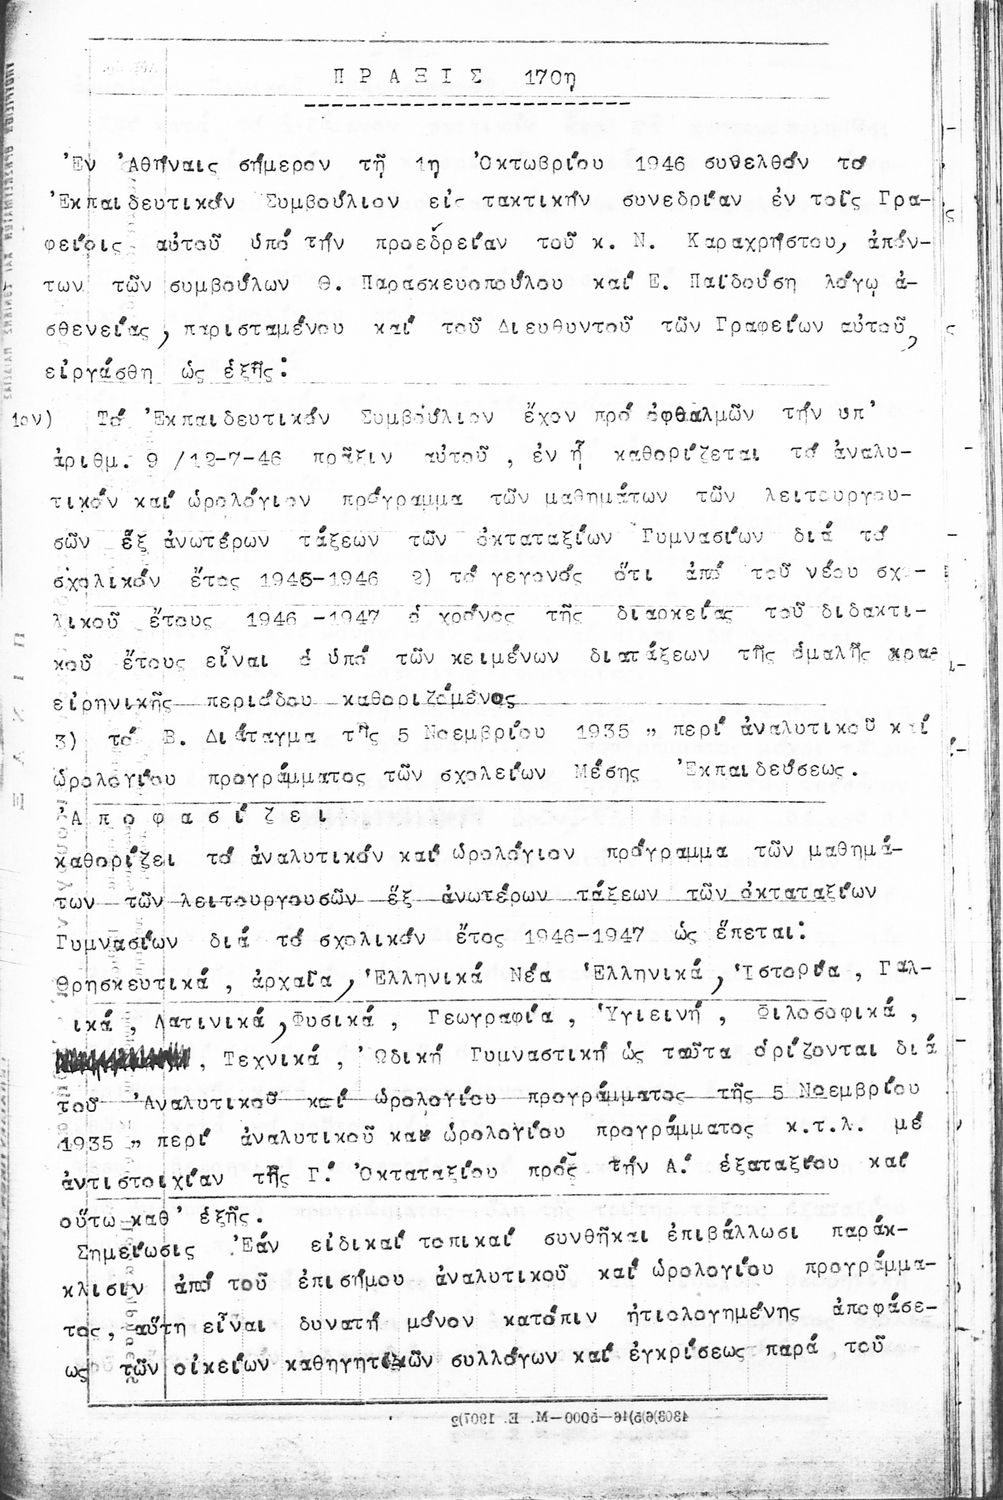 ΠΡΑΞΙΣ 170η
Ἐν Ἀθήναις σήμερον τῇ 1η Ὀκτωβρίου 1946 συνελθόν τό
Ἐκπαιδευτικόν Συμβούλιον εἰς τακτικήν συνεδρίαν ἐν τοῖς Γρα-
φείοις αὐτοῦ ὑπό τήν προεδρείαν τοῦ κ. Ν. Καραχρήστου, ἀπόν-
των τῶν συμβούλων Θ. Παρασκευοπούλου καί Ε. Παϊδούση λόγῳ ἀ-
σθενείας, παρισταμένου καί τοῦ Διευθυντοῦ τῶν Γραφείων αὐτοῦ,
εἰργάσθη ὡς ἑξῆς:
1ον) Τό Ἐκπαιδευτικόν Συμβούλιον ἔχον πρό ὀφθαλμῶν τήν ὑπ'
ἀριθμ. 9 /12-7-46 πρᾶξιν αὐτοῦ, ἐν ᾗ καθορίζεται τό ἀναλυ-
τικόν καί ὡρολόγιον πρόγραμμα τῶν μαθημάτων τῶν λειτουργου-
σῶν ἕξ ἀνωτέρων τάξεων τῶν ὀκταταξίων Γυμνασίων διά τό
σχολικόν ἔτος 1945-1946 2) τό γεγονός ὅτι ἀπό τοῦ νέου σχο-
λικοῦ ἔτους 1946 -1947 ὁ χρόνος τῆς διαρκείας τοῦ διδακτι-
κοῦ ἔτους εἶναι ὁ ὑπό τῶν κειμένων διατάξεων τῆς ὁμαλῆς
εἰρηνικῆς περιόδου καθοριζόμενος
3) τό Β. Διάταγμα τῆς 5 Νοεμβρίου 1935 " περί ἀναλυτικοῦ καί
ὡρολογίου προγράμματος τῶν σχολείων Μέσης Ἐκπαιδεύσεως.
Ἀποφασίζει
καθορίζει τό ἀναλυτικόν καί ὡρολόγιον πρόγραμμα τῶν μαθημά-
των τῶν λειτουργουσῶν ἕξ ἀνωτέρων τάξεων τῶν ὀκταταξίων
Γυμνασίων διά τό σχολικόν ἔτος 1946-1947 ὡς ἕπεται:
Θρησκευτικά, ἀρχαῖα, Ἑλληνικά Νέα Ἑλληνικά, Ἱστορία, Γαλ-
ικά, Λατινικά, Φυσικά, Γεωγραφία, Ὑγιεινή, Φιλοσοφικά,
, Τεχνικά, Ὠδική Γυμναστική ὡς ταῦτα ὁρίζονται διά
τοῦ Ἀναλυτικοῦ καί ὡρολογίου προγράμματος τῆς 5 Νοεμβρίου
1935 " περί ἀναλυτικοῦ καί ὡρολογίου προγράμματος κ.τ.λ. μέ
ἀντιστοιχίαν τῆς Γ. Ὀκταταξίου πρός τήν Α. ἑξαταξίου καί
οὕτω καθ' ἑξῆς.
Σημείωσις Ἐάν εἰδικαί τοπικαί συνθῆκαι ἐπιβάλλωσι παράκ-
κλισιν ἀπό τοῦ ἐπισήμου ἀναλυτικοῦ καί ὡρολογίου προγράμμα-
τος, αὕτη εἶναι δυνατή μόνον κατόπιν ᾐτιολογημένης ἀποφάσε-
ως τῶν οἰκείων καθηγητικῶν συλλόγων καί ἐγκρίσεως παρά τοῦ